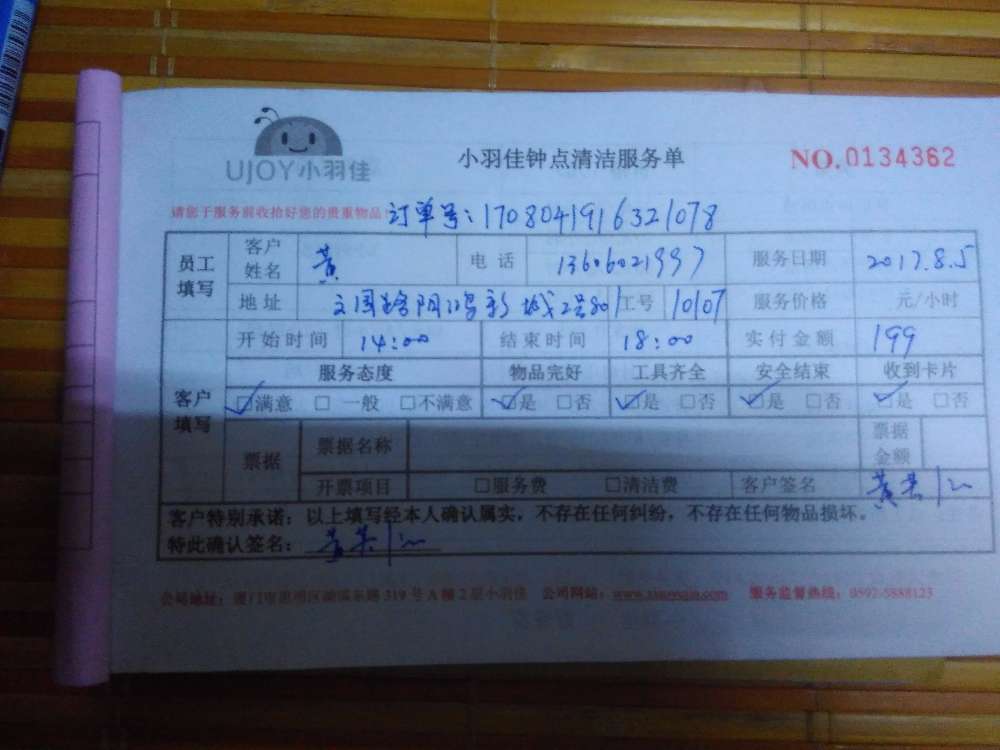 UJOY小羽佳
小羽佳钟点清洁服务单
NO.0134362
请您于服务前收拾好您的贵重物品!
订单号:1708041916321078
员工填写 客户姓名 黄 电话 13606021997 服务日期 2017.8.5
地址 文园路阳鸿新城2号801 工号 10107 服务价格 元/小时
客户填写 开始时间 14:00 结束时间 18:00 实付金额 199
服务态度 物品完好 工具齐全 安全结束 收到卡片
☑满意 □一般 □不满意 ☑是 □否 ☑是 □否 ☑是 □否 ☑是 □否
票据 票据名称 票据金额
开票项目 □服务费 □清洁费 客户签名 黄
客户特别承诺:以上填写经本人确认属实,不存在任何纠纷,不存在任何物品损坏。
特此确认签名: 黄
公司地址:厦门市思明区 319号A幢2层小羽佳 公司网站: 服务监督热线:0592-5888123